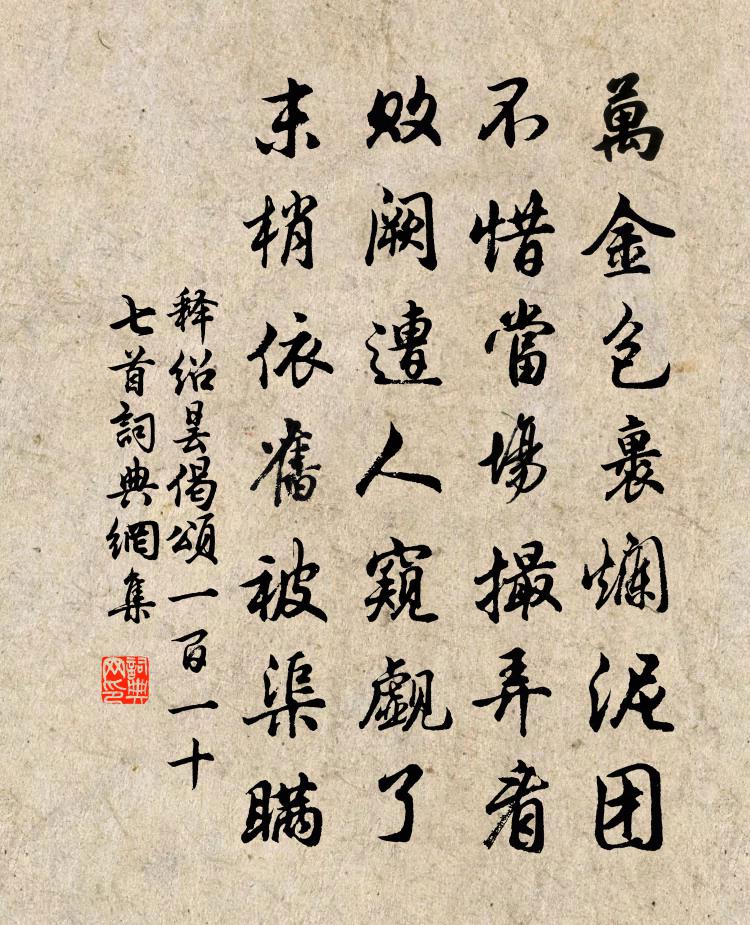 萬金包裹爛泥团
不惜當場撮弄看
敗阙遭人窺覷了
末梢依舊被渠瞞
释绍昙偈頌一百一十
七首詞典網集
詞典网印